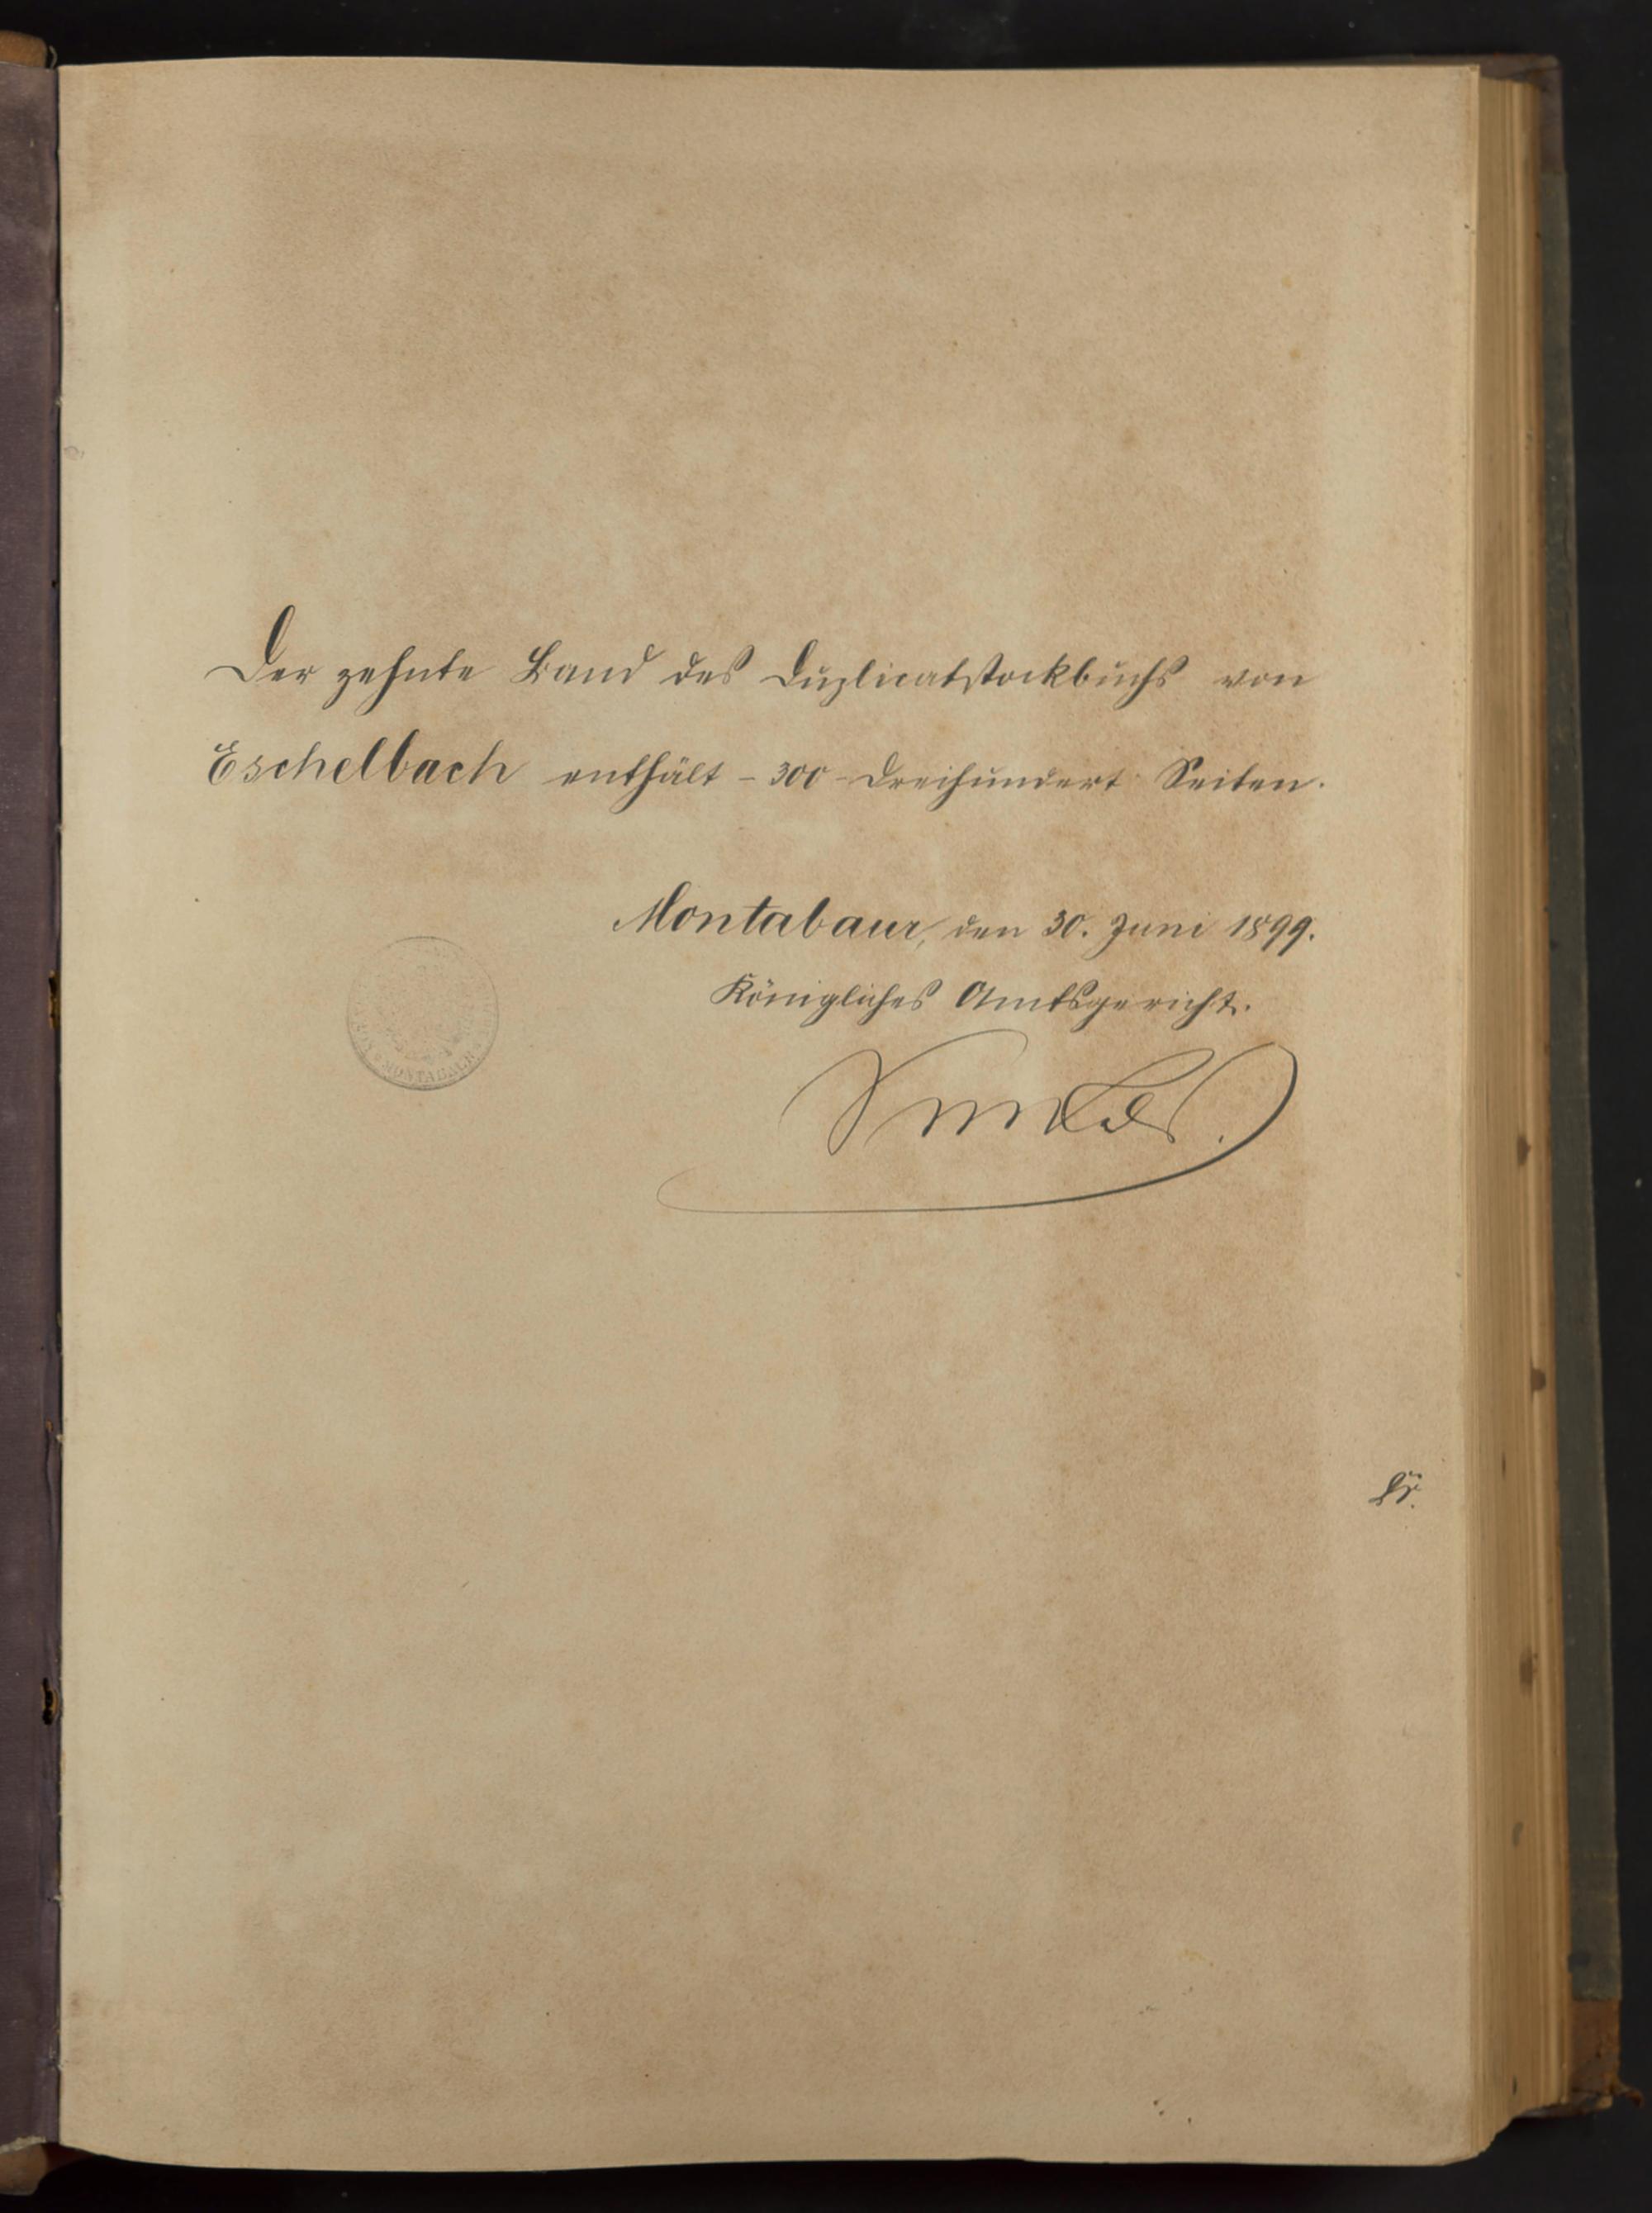 Der zehnte Band des Duplicatstockbuchs von
Eschelbach enthält - 300 - Dreihundert Seiten.
Montabaur, den 30. Juni 1899.
Königliches Amtsgericht.
MONTABAUR